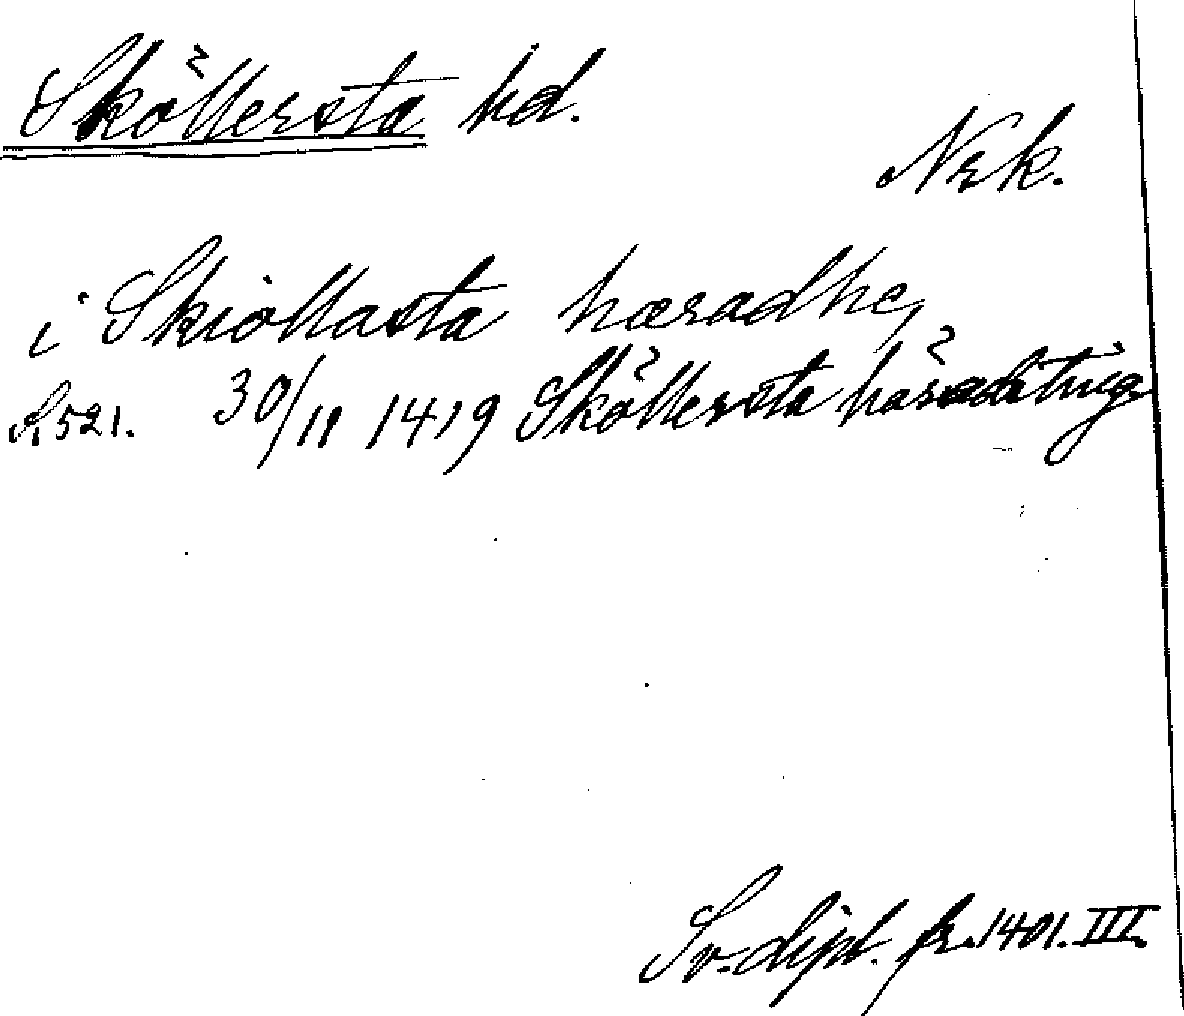 Sköllersta hd.
Nrk.
i Skiöllasta haradhe,
S. 521. 30/11 1419 Sköllersta häradsting
Sv. dipl. fr. 1401. III.